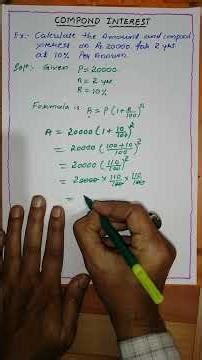 COMPOUND INTEREST
Ex:- Calculate the Amount and compound
interest on Rs 20000 for 2 yrs
at 10% Per Annum.
Solⁿ:- Given P = 20000
n = 2 yrs
R = 10%
Formula is A = P(1 + R/100)ⁿ
A = 20000(1 + 10/100)²
= 20000(100+10/100)²
= 20000(110/100)²
= 20000 × 110/100 × 110/100
=